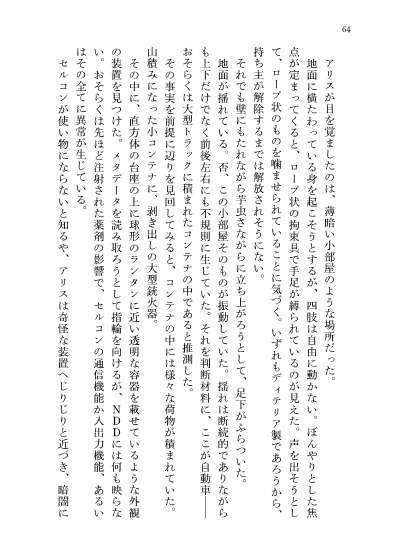 64
アリスが目を覚ましたのは、薄暗い小部屋のような場所だった。
地面に横たわっている身を起こそうとするが、四肢は自由に動かない。ぼんやりとした焦
点が定まってくると、ロープ状の拘束具で手足が縛られているのが見えた。声を出そうとし
て、ロープ状のものを噛ませられていることに気づく。いずれもディテリア製であろうから、
持ち主が解除するまでは解放されそうにない。
それでも壁にもたれながら芋虫さながらに立ち上がろうとして、足下がふらついた。
地面が揺れている。否、この小部屋そのものが振動していた。揺れは断続的でありながら
も上下だけでなく前後左右にも不規則に生じていた。それを判断材料に、ここが自動車――
おそらくは大型トラックに積まれたコンテナの中であると推測した。
その事実を前提に辺りを見回してみると、コンテナの中には様々な荷物が積まれていた。
山積みになった小コンテナに、剥き出しの大型銃火器。
その中に、直方体の台座の上に球形のランタンに近い透明な容器を載せているような外観
の装置を見つけた。メタデータを読み取ろうとして指輪を向けるが、NDDには何も映らな
い。おそらくは先ほど注射された薬剤の影響で、セルコンの通信機能か入出力機能、あるい
はその全てに異常が生じている。
セルコンが使い物にならないと知るや、アリスは奇怪な装置へじりじりと近づき、暗闇に